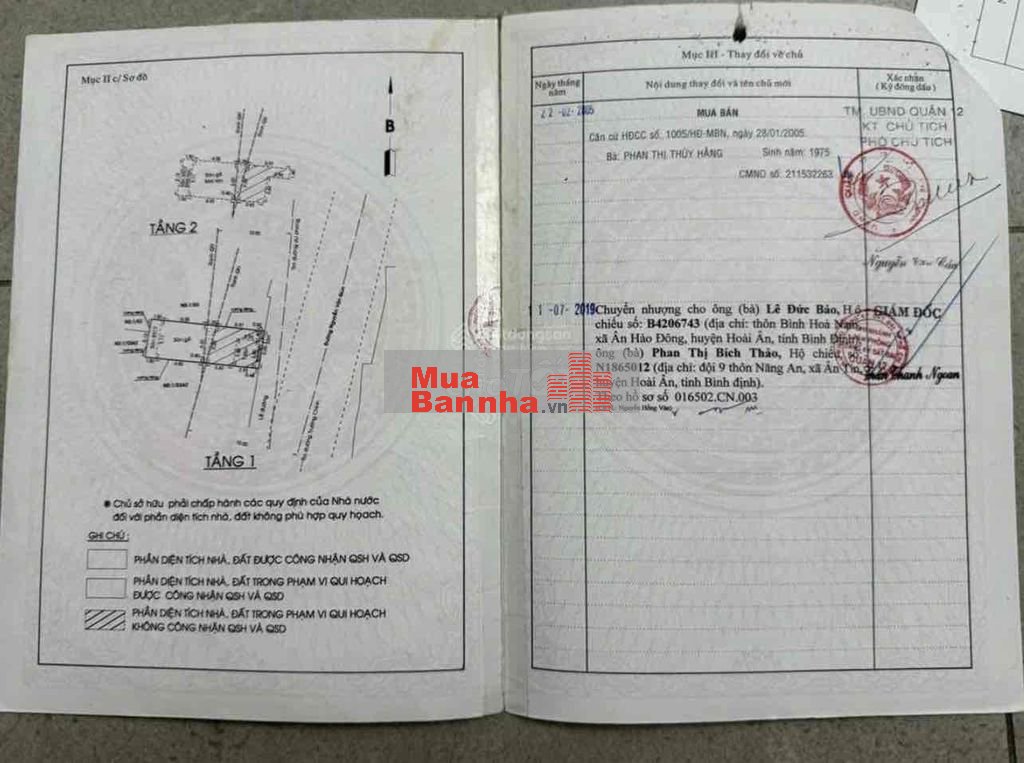 Mục II c/ Sơ đồ
B
TẦNG 2
TẦNG 1
Lề đường
● Chủ sở hữu phải chấp hành các quy định của Nhà nước
đối với phần diện tích nhà, đất không phù hợp quy hoạch.
GHI CHÚ :
PHẦN DIỆN TÍCH NHÀ, ĐẤT ĐƯỢC CÔNG NHẬN QSH VÀ QSD
PHẦN DIỆN TÍCH NHÀ, ĐẤT TRONG PHẠM VI QUI HOẠCH
ĐƯỢC CÔNG NHẬN QSH VÀ QSD
PHẦN DIỆN TÍCH NHÀ, ĐẤT TRONG PHẠM VI QUI HOẠCH
KHÔNG CÔNG NHẬN QSH VÀ QSD
Mục III - Thay đổi về chủ
Ngày tháng năm
Nội dung thay đổi và tên chủ mới
Xác nhận
( Ký đóng dấu )
22 -02- 2005
MUA BÁN
Căn cứ HĐCC số, 1005/HĐ-MBN, ngày 28/01/2005.
Bà: PHAN THỊ THÚY HẰNG Sinh năm: 1975
CMND số: 211532263
TM. UBND QUẬN 12
KT CHỦ TỊCH
PHÓ CHỦ TỊCH
Nguyễn Văn
11 -07- 2019 Chuyển nhượng cho ông (bà) Lê Đức Bảo, Hộ
chiếu số: B4206743 (địa chỉ: thôn Bình Hoà Nam,
xã Ân Hảo Đông, huyện Hoài Ân, tỉnh Bình Định);
ông (bà) Phan Thị Bích Thảo, Hộ chiếu
N1865012 (địa chỉ: đội 9 thôn Năng An, xã Ân Tín,
huyện Hoài Ân, tỉnh Bình định).
Theo hồ sơ số 016502.CN.003
Nguyễn Hồng Vân
GIÁM ĐỐC
Thanh Ngoan
Mua
Bannha.vn